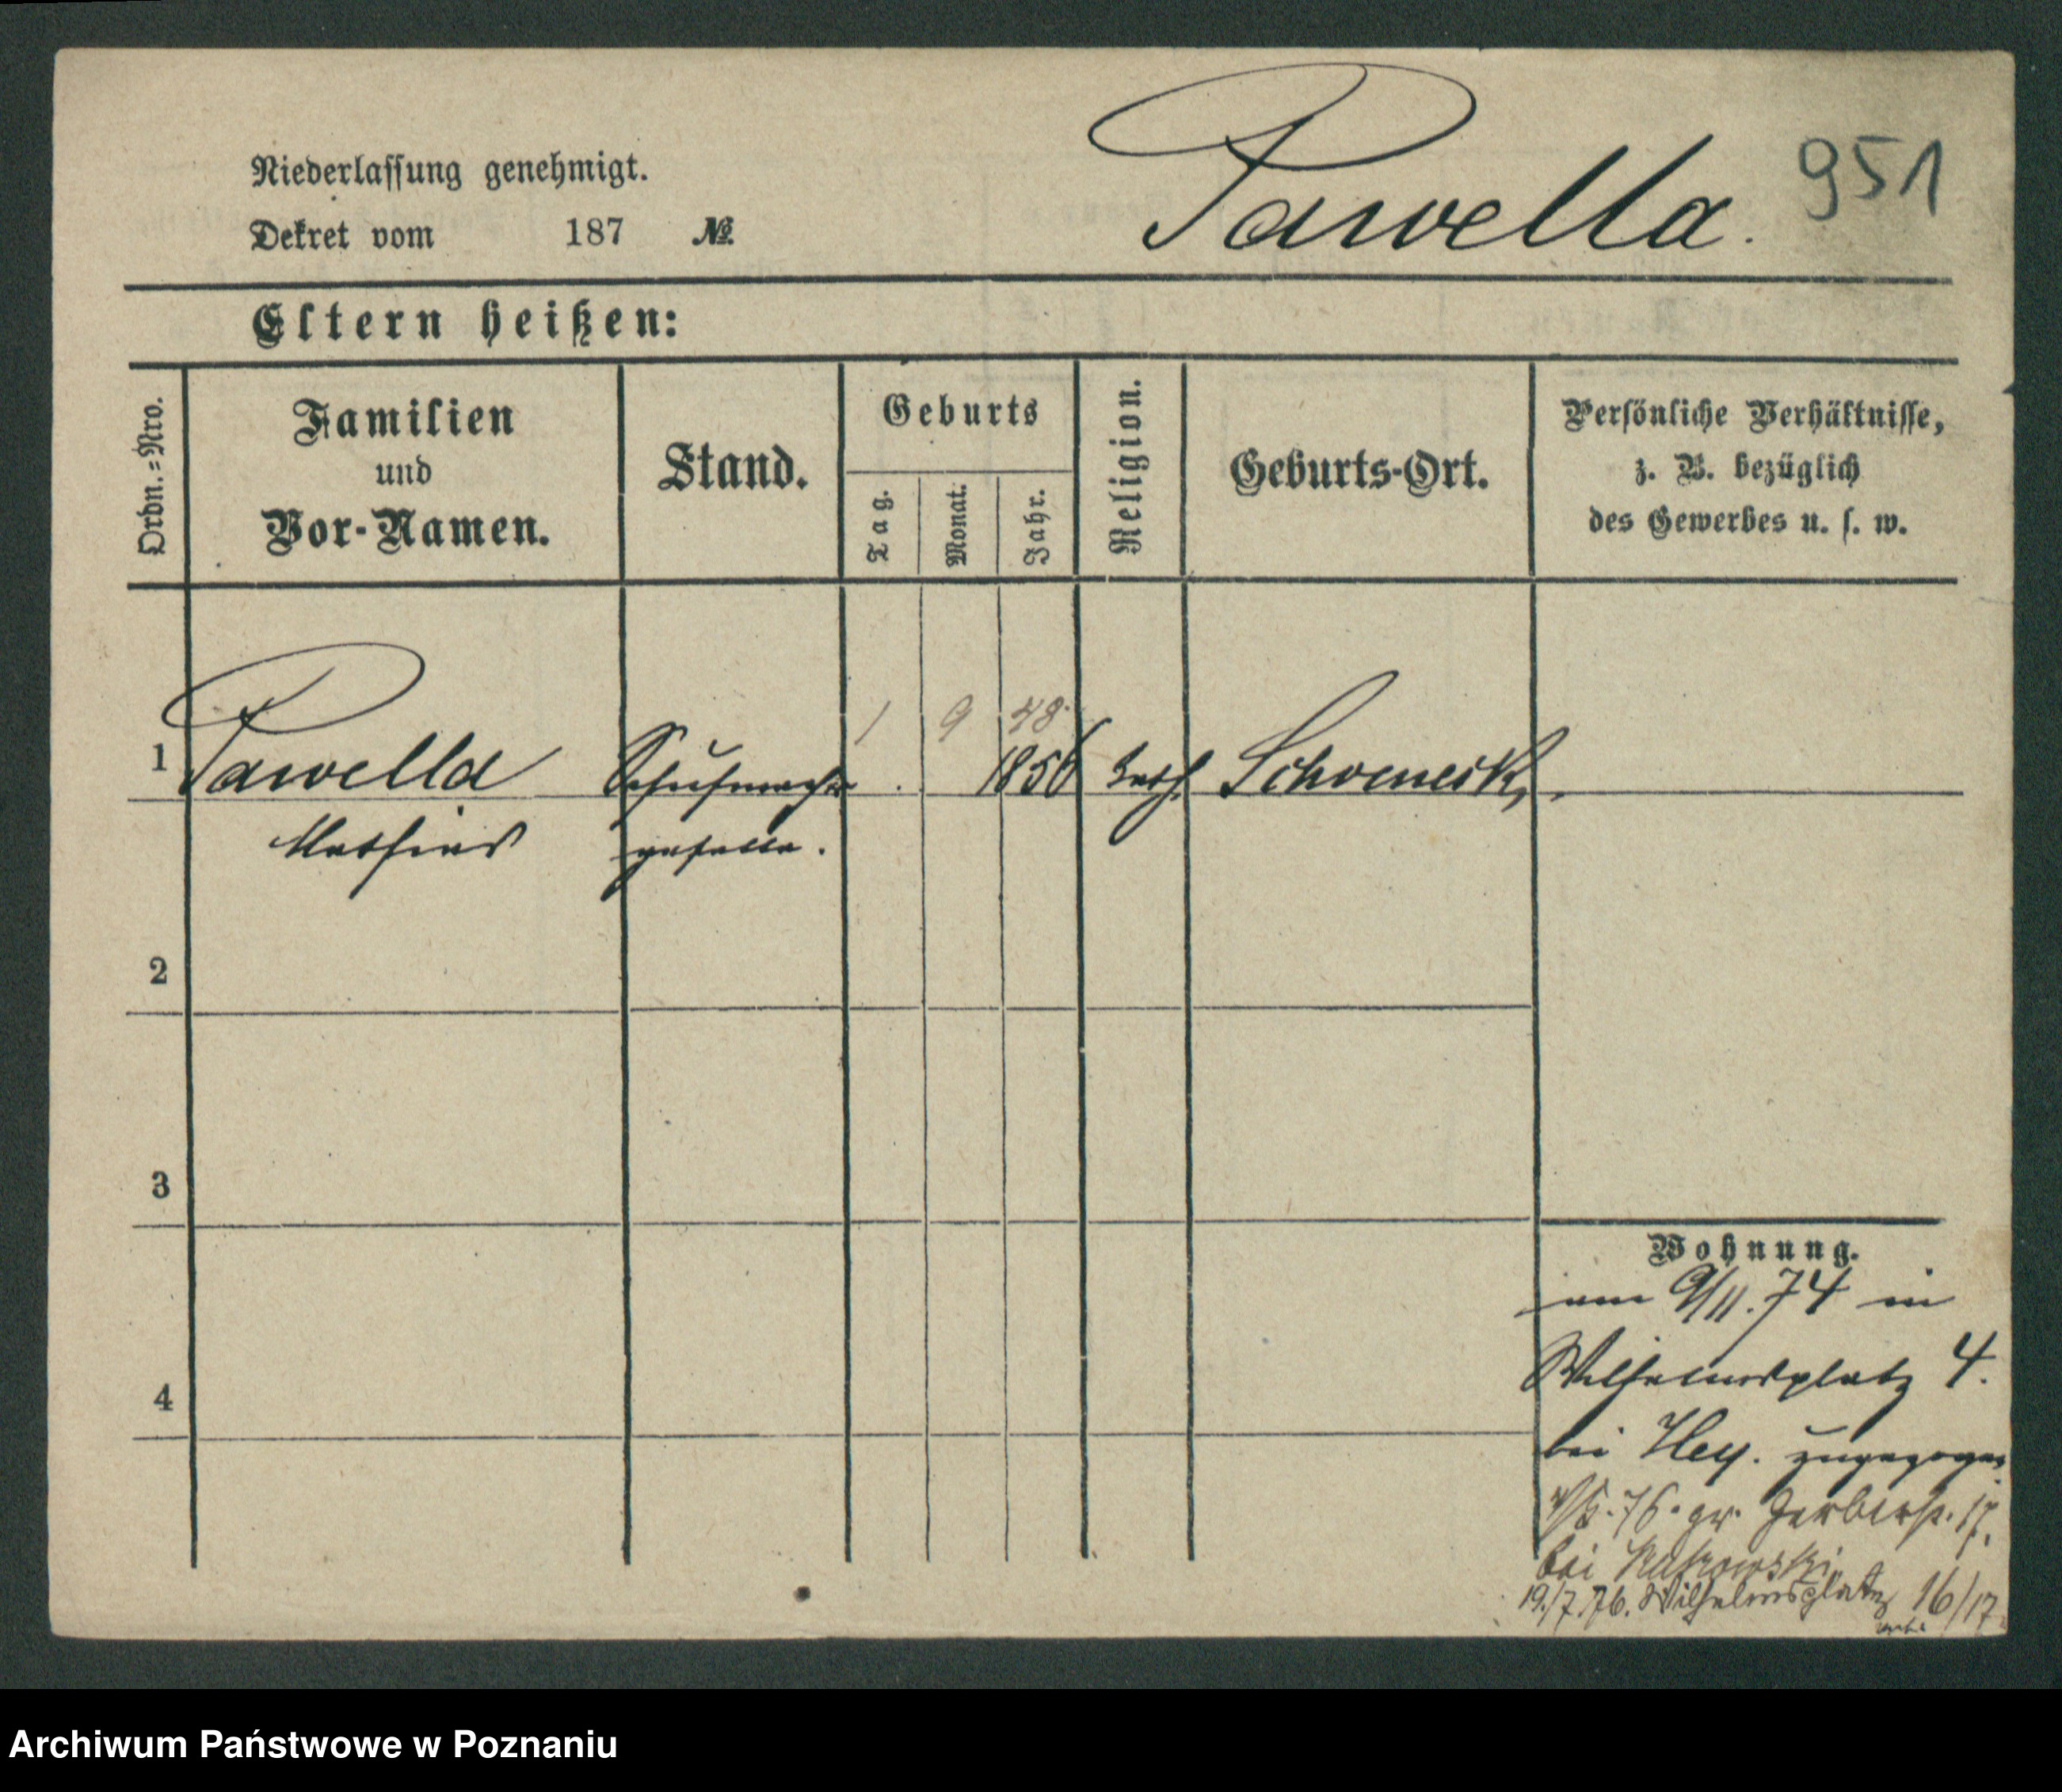 Niederlassung genehmigt.
Dekret vom 187 №
Pawella.
951
Eltern heißen:
Ordn.=Nro.
Familien
und
Vor-Namen.
Stand.
Geburts
Tag.
Monat.
Jahr.
Religion.
Geburts-Ort.
Persönliche Verhältnisse,
z. B. bezüglich
des Gewerbes u. s. w.
1 9 48
1 Pawella Schuhmacher 1856 kath. Schoeneck,
Mathias geselle.
2
3
4
Wohnung.
am 9/11. 74 in
Wilhelmsplatz 4.
bei Hey. zugezogen
76. gr. Gerberstr. 17.
bei
19./7.76. Wilhelmsplatz 16/17
Archiwum Państwowe w Poznaniu